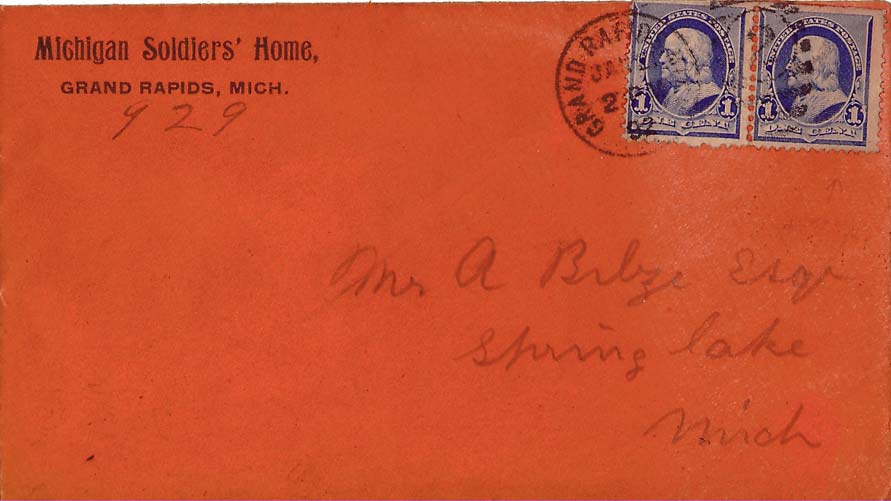 Michigan Soldiers' Home,
GRAND RAPIDS, MICH.
929
GRAND RAPI
JAN
2
92
UNITED STATES POSTAGE
1 1
ONE CENT
UNITED STATES POSTAGE
1 1
ONE CENT
Mr A Bilze Esqr
Spring lake
Mich